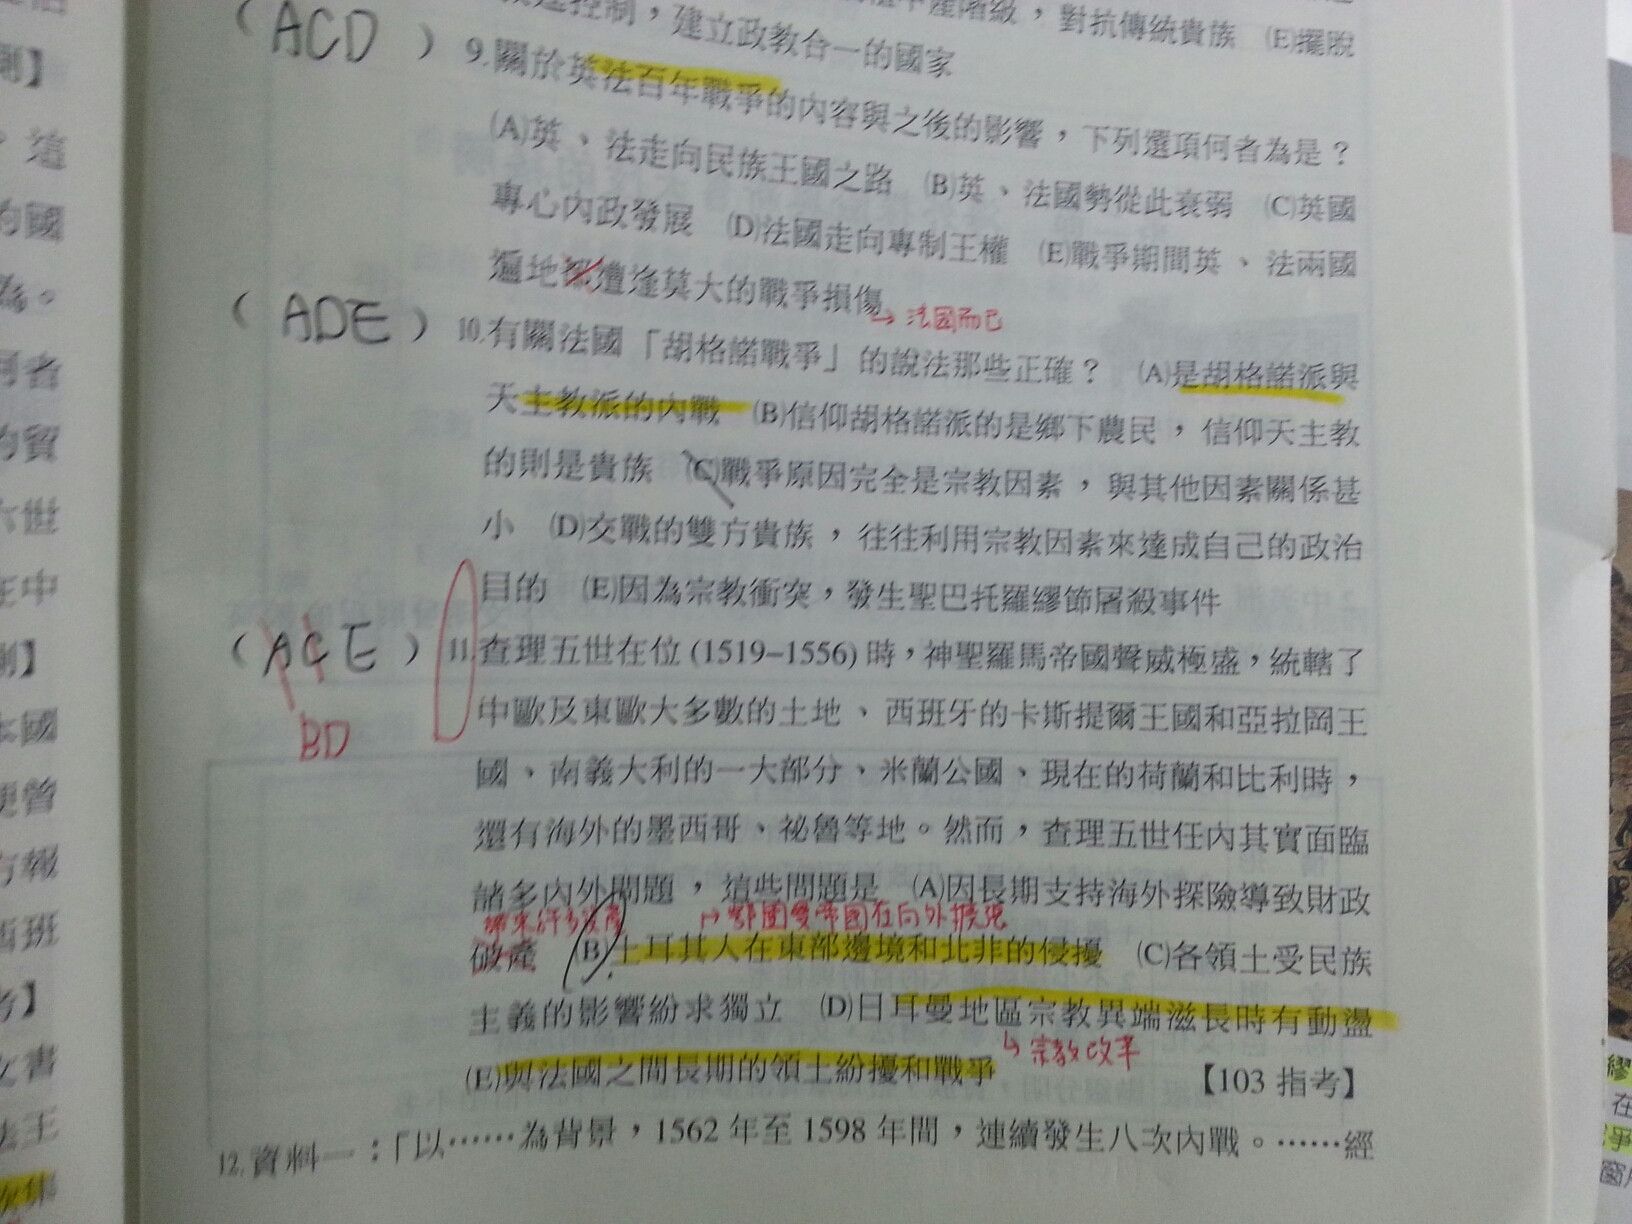 控制，建立政教合一的國家
產階級，對抗傳統貴族 (E)擺脫
( ACD ) 9.關於英法百年戰爭的內容與之後的影響，下列選項何者為是？
(A)英、法走向民族王國之路 (B)英、法國勢從此衰弱 (C)英國
專心內政發展 (D)法國走向專制王權 (E)戰爭期間英、法兩國
遍地都遭逢莫大的戰爭損傷
→ 法國而已
( ADE ) 10.有關法國「胡格諾戰爭」的說法那些正確？ (A)是胡格諾派與
天主教派的內戰 (B)信仰胡格諾派的是鄉下農民，信仰天主教
的則是貴族 (C)戰爭原因完全是宗教因素，與其他因素關係甚
小 (D)交戰的雙方貴族，往往利用宗教因素來達成自己的政治
目的 (E)因為宗教衝突，發生聖巴托羅繆節屠殺事件
( ACE ) 11.查理五世在位(1519–1556)時，神聖羅馬帝國聲威極盛，統轄了
BD
中歐及東歐大多數的土地、西班牙的卡斯提爾王國和亞拉岡王
國、南義大利的一大部分、米蘭公國、現在的荷蘭和比利時，
還有海外的墨西哥、祕魯等地。然而，查理五世任內其實面臨
諸多內外問題，這些問題是 (A)因長期支持海外探險導致財政
帶來許多資產 → 鄂圖曼帝國在向外擴張
破產 (B)土耳其人在東部邊境和北非的侵擾 (C)各領土受民族
主義的影響紛求獨立 (D)日耳曼地區宗教異端滋長時有動盪
→ 宗教改革
(E)與法國之間長期的領土紛擾和戰爭 【103 指考】
12.資料一：「以……為背景，1562 年至 1598 年間，連續發生八次內戰。……經